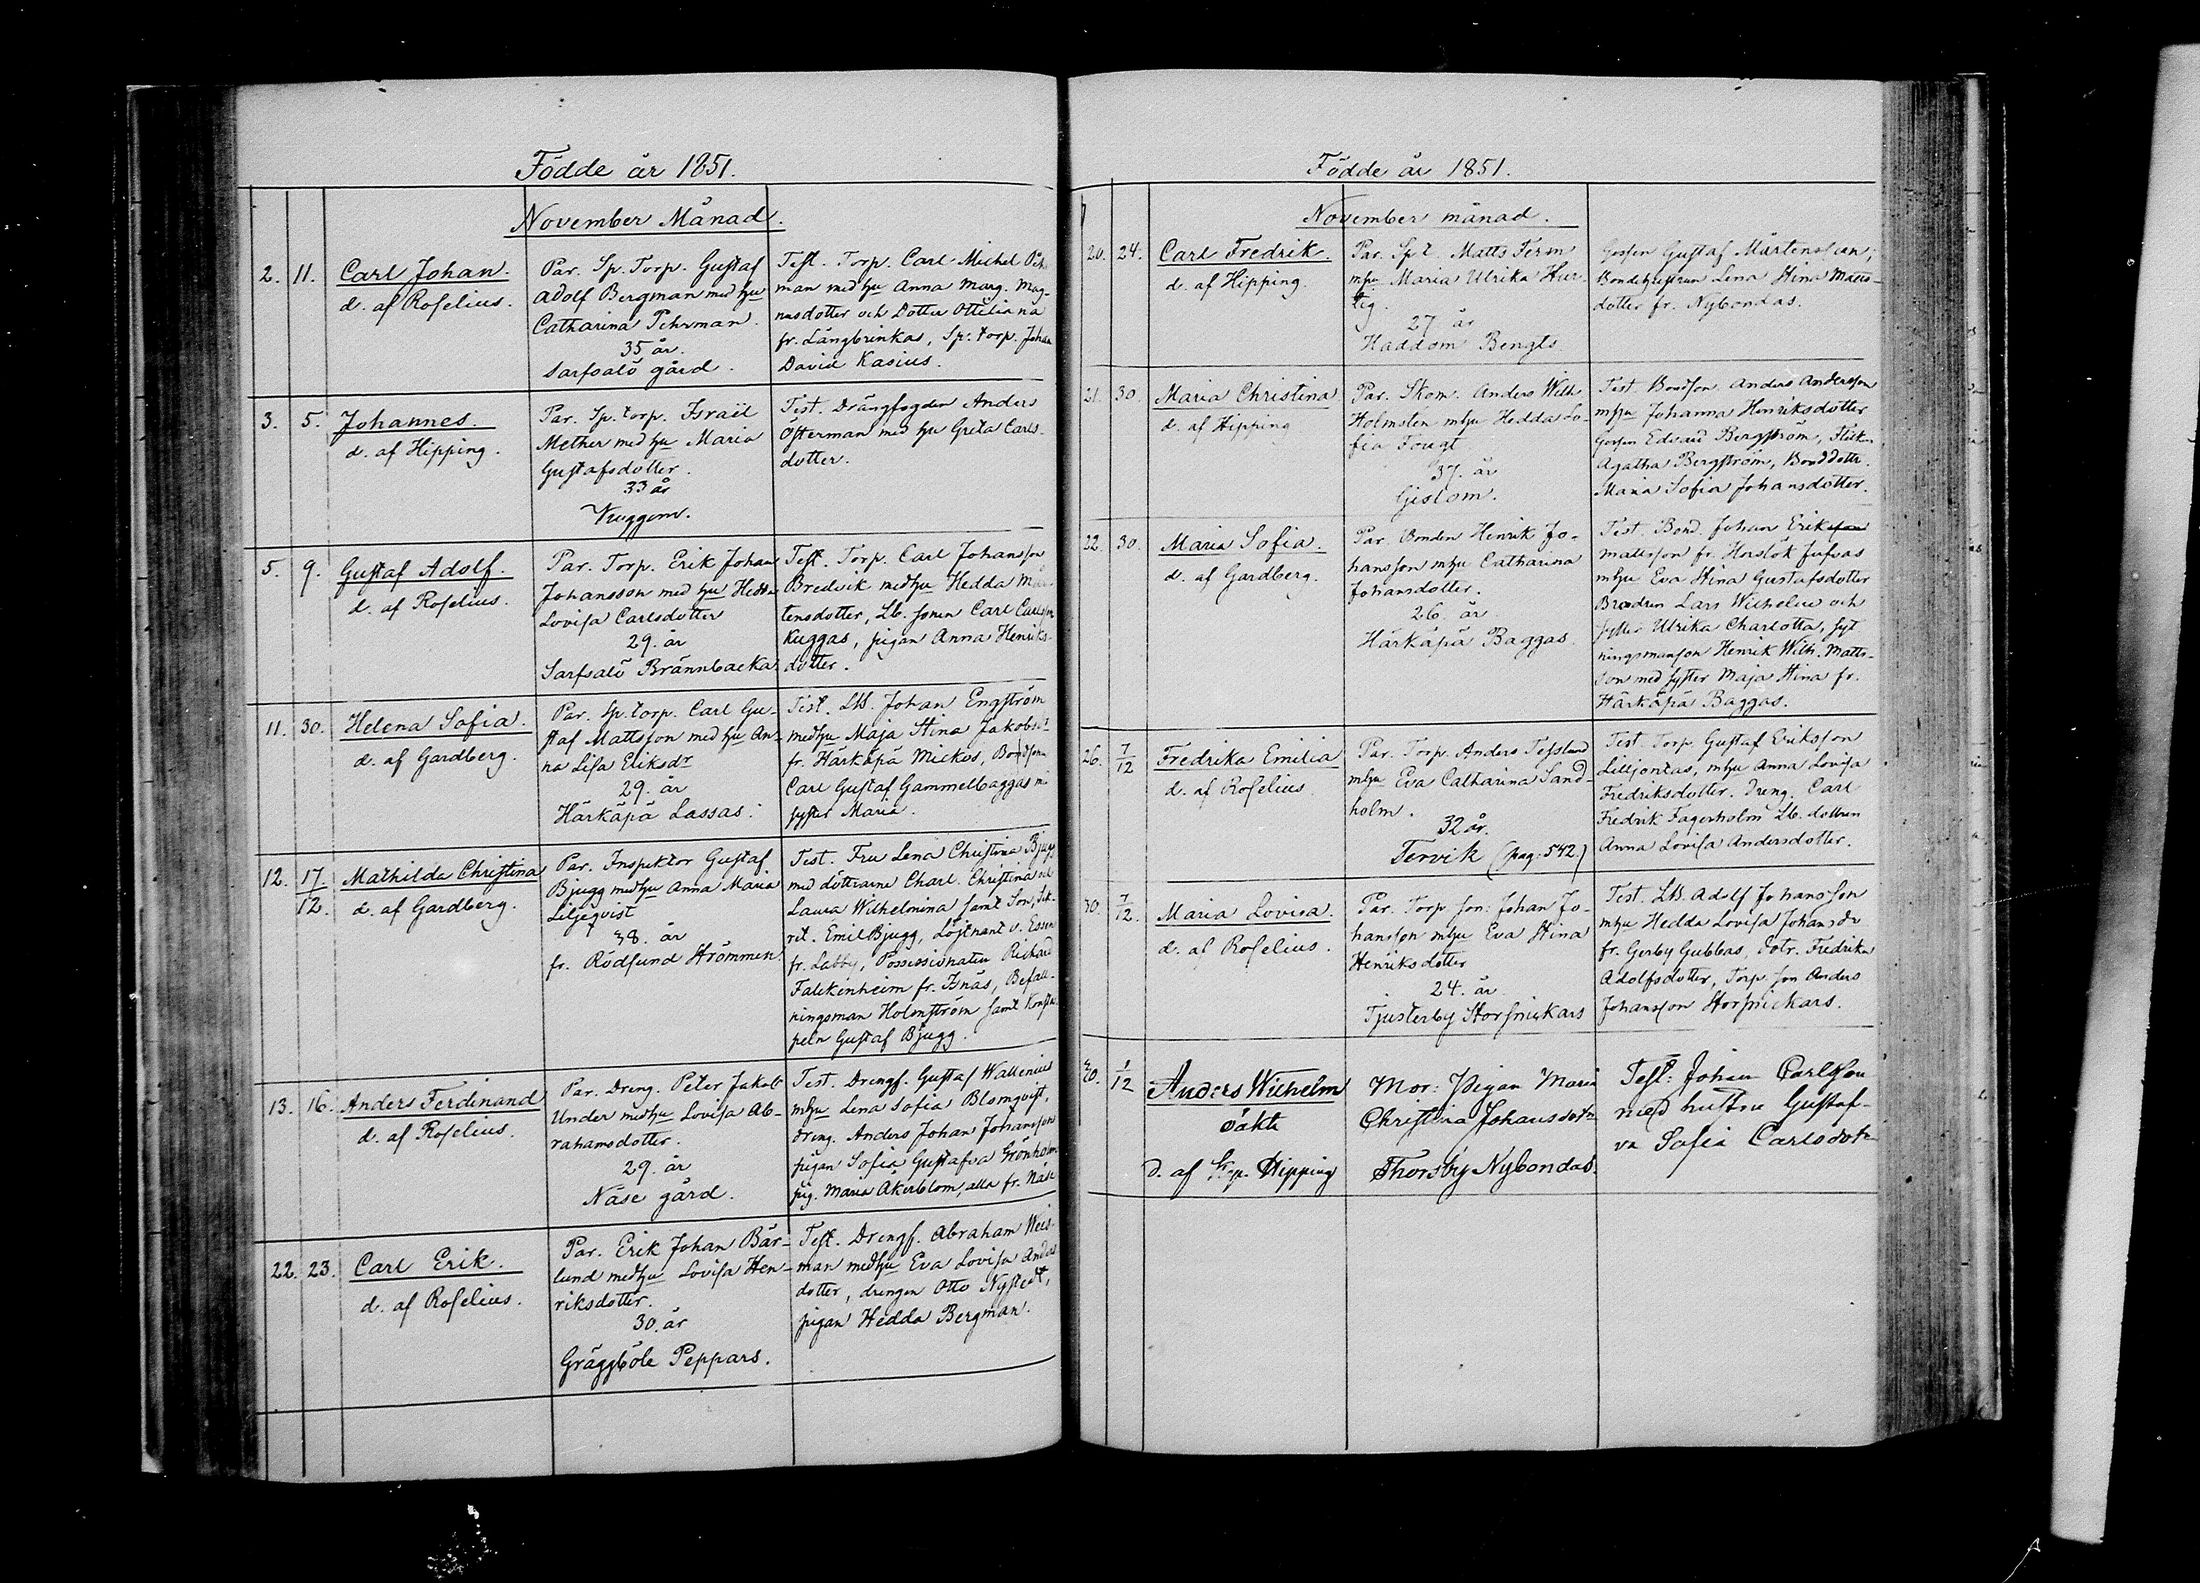 Födde år 1851.
November Månad.
2. 11. Carl Johan.
d. af Roselius.
Par. Sp. Torp. Gustaf
Adolf Bergman med hu
Catharina Pehrman.
35 år.
Sarfsalö gård.
Test. Torp. Carl Michel
man med hu Anna Marg. Mag-
nusdotter och Dotter Ottiliana
fr. Långbrinkas, Sp. torp. Johan
David Kasius.
3. 5. Johannes.
d. af Hipping.
Par. Sp. torp. Israël
Mether med hu Maria
Gustafsdotter.
33 år
Kuggom.
Test. Drängfogden Anders
Österman med hu Greta Carls-
dotter.
5. 9. Gustaf Adolf.
d. af Roselius.
Par. Torp. Erik Johan
Johansson med hu Hedda
Lovisa Carlsdotter
29. år
Sarfsalö Brännbacka
Test. Torp. Carl Johansson
Bredvik medhu Hedda Mår-
tensdotter, Lb. sonen Carl Carlsson
Kuggas, pigan Anna Henriks-
dotter.
11. 30. Helena Sofia.
d. af Gardberg.
Par. Sp. torp. Carl Gu-
staf Mattsson med hu An-
na Lisa Eriksdr
29. år
Härkäpä Lassas.
Test. Lb. Johan Engström
medhu Maja Stina Jakobsdr
fr. Härkäpä Mickos, Bondsonen
Carl Gustaf Gammelbaggas m
syster Maria.
12. 17/12. Mathilda Christina
d. af Gardberg.
Par. Inspektor Gustaf
Bjugg medhu Anna Maria
Liljeqvist
38. år
fr. Rödsund Strömmen.
Test. Fru Lena Christina Bjugg
med döttrarne Charl. Christina och
Laura Wilhelmina samt Son, Sek-
ret. Emil Bjugg, Löjtnant v. Essen
fr. Labby, Possessionaten Rickard
Falckenheim fr. Isnäs, Befall-
ningsman Holmström samt Konsta-
peln Gustaf Bjugg.
13. 16. Anders Ferdinand
d. af Roselius.
Par. Dreng. Peter Jakob
Under medhu Lovisa Ab-
rahamsdotter.
29. år
Näse gård.
Test. Drengf. Gustaf Wallenius
mhu Lena Sofia Blomqvist,
dreng. Anders Johan Johansson
pigan Sofia Gustafva Grönholm
pig. Maria Åkerblom, alla fr. Näse
22. 23. Carl Erik.
d. af Roselius.
Par. Erik Johan Bär-
lund medhu Lovisa Hen-
riksdotter.
30. år
Gräggböle Peppars.
Test. Drengf. Abraham Weis-
man medhu Eva Lovisa Anders
dotter, drengen Otto Nystedt,
pigan Hedda Bergman.
Födde år 1851.
November månad.
20. 24. Carl Fredrik.
d. af Hipping.
Par. Sp t. Matts Ferm
mhu Maria Ulrika Hur-
tig.
27 år
Haddom Bengts
Gossen Gustaf Mårtensson,
Bondehustrun Lena Stina Matts-
dotter fr. Nybondas.
21. 30. Maria Christina
d. af Hipping
Par. Skom. Anders Wilh.
Holmsten mhu Hedda So-
fia Fougt
37. år
Gislom.
Test. Bondson. Anders Andersson
mhu Johanna Henriksdotter
Gossen Edvard Bergström, Flick.
Agatha Bergström, Bonddottr.
Maria Sofia Johansdotter.
22. 30. Maria Sofia.
d. af Gardberg.
Par. Bonden Henrik Jo-
hansson mhu Catharina
Johansdotter.
26. år
Härkäpä Baggas
Test. Bond. Johan Erikson
Mattsson fr. Horslök Jufsas
mhu Eva Stina Gustafsdotter
Brodren Lars Wilhelm och
syster Ulrika Charlotta, Syt
ningsmanson Henrik Wilh. Matts-
son med syster Maja Stina fr.
Härkäpä Baggas.
26. 7/12 Fredrika Emilia
d. af Roselius.
Par. Torp. Anders Tesslund
mhu Eva Catharina Sand-
holm.
32 år.
Tervik (pag: 542.)
Test. Torp. Gustaf Eriksson
Lilljontas, mhu Anna Lovisa
Fredriksdotter. Dreng. Carl
Fredrik Fagerholm Lb. dottren
Anna Lovisa Andersdotter.
30. 7/12. Maria Lovisa.
d. af Roselius.
Par. Torp son: Johan Jo-
hansson mhu Eva Stina
Henriksdotter
24. år.
Tjusterby Storsnickars
Test. Lb. Adolf Johansson
mhu Hedda Lovisa Johansdr
fr. Gerby Gubbas, dotr. Fredrika
Adolfsdotter, Torp. son Anders
Johansson Storsnickars.
30. 1/12 Anders Wilhelm
oäkta
D. af Kap. Hipping
Mor: Pigan Maria
Christina Johansdotr
Thorsby Nybondas
Test: Johan Carlsson
med hustru Gustaf-
va Sofia Carlsdotr